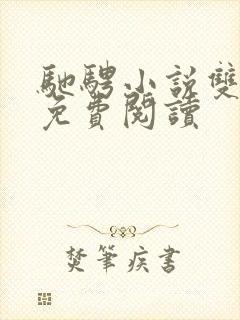 馳騁小說雙
免費閱讀
焚筆疾書